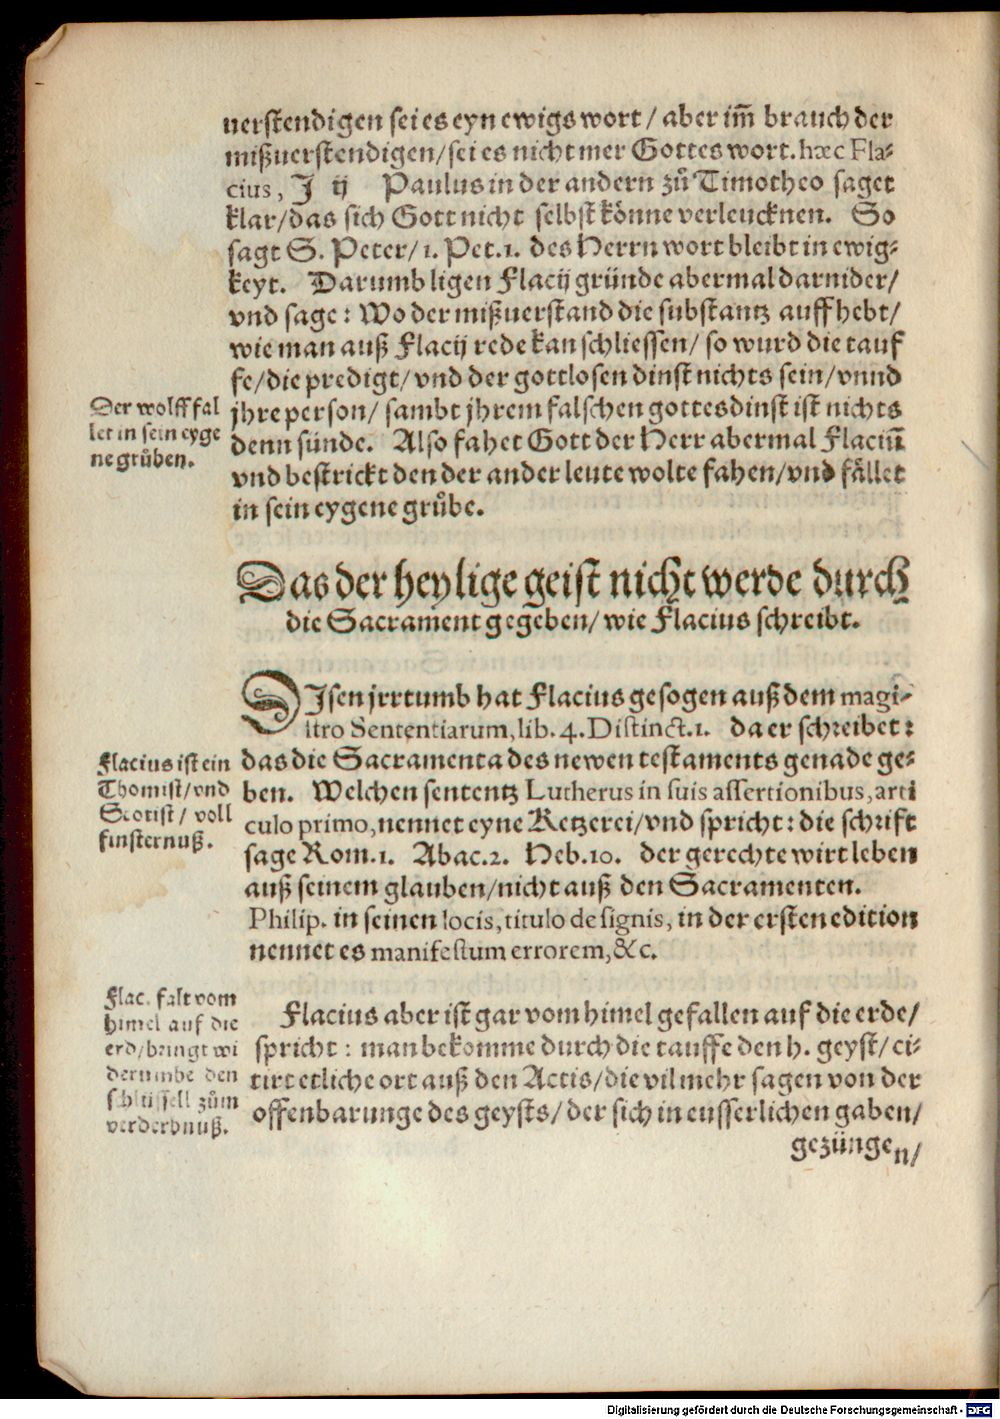 uerstendigen sei es eyn ewigs wort / aber im̄ brauch der
mißuerstendigen/ sei es nicht mer Gottes wort. hæc Fla-
cius, J ij Paulus in der andern zů Timotheo saget
klar/ das sich Gott nicht selbst könne verleucknen. So
sagt S. Peter/ 1. Pet. 1. des Herrn wort bleibt in ewig-
keyt. Darumb ligen Flacij gründe abermal darnider/
vnd sage: Wo der mißuerstand die substantz auffhebt/
wie man auß Flacij rede kan schliessen/ so wurd die tauf
fe/ die predigt/ vnd der gottlosen dinst nichts sein/ vnnd
jhre person/ sambt jhrem falschen gottesdinst ist nichts
denn sünde. Also fahet Gott der Herr abermal Flaciū
vnd bestrickt den der ander leute wolte fahen/ vnd fället
in sein eygene grůbe.
Der wolff fal
let in sein eyge
ne grůben.
Das der heylige geist nicht werde durch
die Sacrament gegeben/ wie Flacius schreibt.
DIsen jrrtumb hat Flacius gesogen auß dem magi-
stro Sententiarum, lib. 4. Distinct. 1. da er schreibet:
das die Sacramenta des newen testaments genade ge-
ben. Welchen sententz Lutherus in suis assertionibus, arti
culo primo, nennet eyne Ketzerei/ vnd spricht: die schrift
sage Rom. 1. Abac. 2. Heb. 10. der gerechte wirt leben
auß seinem glauben/ nicht auß den Sacramenten.
Philip. in seinen locis, titulo de signis, in der ersten edition
nennet es manifestum errorem, &c.
Flacius ist ein
Thomist/ vnd
Scotist/ voll
finsternuß.
Flacius aber ist gar vom himel gefallen auf die erde/
spricht: man bekomme durch die tauffe den h. geyst/ ci-
tirt etliche ort auß den Actis/ die vil mehr sagen von der
offenbarunge des geysts/ der sich in eusserlichen gaben/
gezüngen/
Flac. falt vom
himel auf die
erd/ bringt wi
derumbe den
schlüssell zům
verderbnuß.
Digitalisierung gefördert durch die Deutsche Forschungsgemeinschaft - DFG